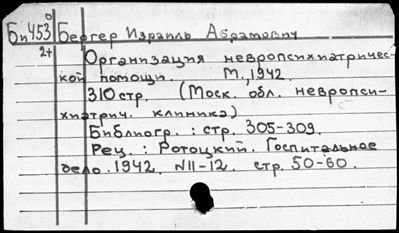 0
Бп453 Бергер Израиль Абрамович
2+ Организация невропсихиатричес-
кой помощи. М., 1942.
310 стр. (Моск. обл. невропси-
хиатрич. клиника)
Библиогр.: стр. 305-309.
Рец.: Ротоцкий. Госпитальное
дело. 1942. №11-12. стр. 50-60.